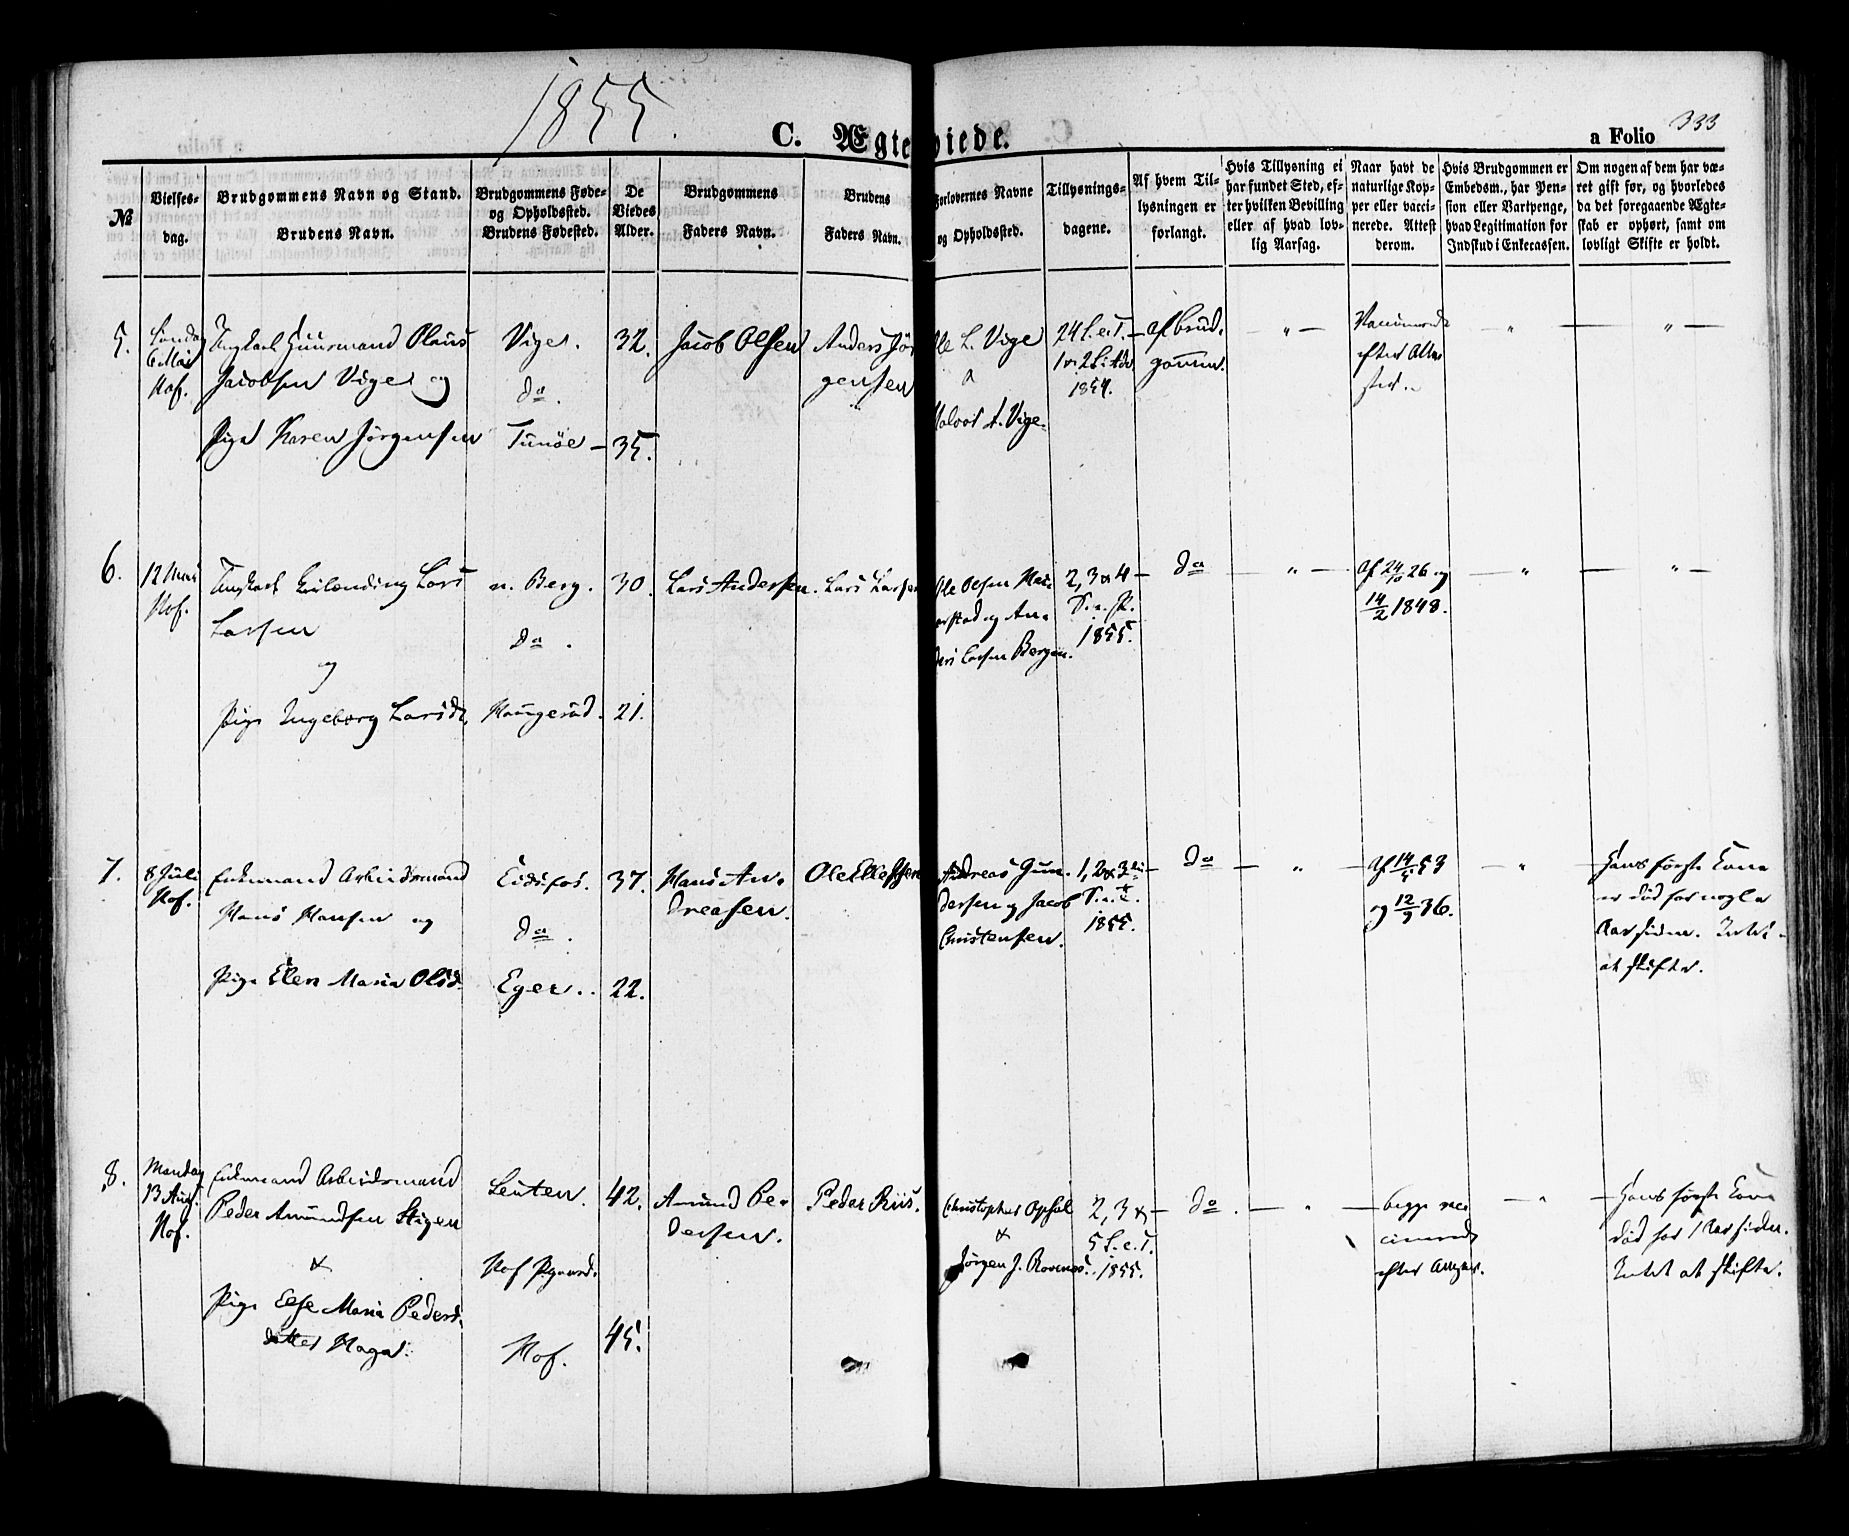 1855.
C. Ægteviede.
a Folio 333
№
Vielses-
dag.
Brudgommens Navn og Stand.
Brudens Navn.
Brudgommens Føde-
og Opholdssted.
Brudens Fødested.
De
Viedes
Alder.
Brudgommens
Faders Navn.
Brudens
Faders Navn.
Forlovernes Navne
og Opholdssted.
Tillysnings-
dagene.
Af hvem Til-
lysningen er
forlangt.
Hvis Tillysning ei
har fundet Sted, ef-
ter hvilken Bevilling
eller af hvad lov-
lig Aarsag.
Naar havt de
naturlige Kop-
per eller vacci-
nerede. Attest
derom.
Hvis Brudgommen er
Embedsm., har Pen-
sion eller Vartpenge,
hvad Legitimation for
Indskud i Enkecassen.
Om nogen af dem har væ-
ret gift før, og hvorledes
da det foregaaende Ægte-
skab er ophørt, samt om
lovligt Skifte er holdt.
5.
Søndag
6 Mai
Hof.
Ungkarl Huusmand Olaus
Jacobsen Vige og
Pige Karen Jørgensen
Vige.
do.
Tunöe
32.
35.
Jacob Olsen
Anders Jør
gensen
Ole L. Vige
Halvor A. Vige
24 S. e. T.
1854.
af brud-
gommen.
"
Vaccinerede
efter Atte-
ster.
"
"
6.
12
Hof.
Ungkarl Lars
Larsen
og
Pige Ingeborg Larsd.
n. Berg.
do.
Haugerud.
30.
21.
Lars Andersen.
Lars Larsen
Ole Olsen
og An-
ders Larsen Bergan.
2, 3 & 4
1855.
do
"
Af 24/10 26 og
14/2 1848.
"
"
7.
8 Juli
Hof.
Enkemand Arbeidsmand
Hans Hansen og
Pige Elen Maria Olsd.
Eidsfos.
do.
Eger.
37.
22.
Hans An-
dreasen.
Ole Ellefsen
Andreas Gun-
dersen og Jacob
Christensen.
1, 2 & 3die
S. e. T.
1855.
do
"
Af 14/5 53
og 12/9 36.
"
Hans første Kone
er död for nogle
Aar siden. Intet
at skifte.
8.
Mandag
13 Aug.
Hof.
Enkemand Arbeidsmand
Peder Amundsen Stigen
&
Pige Else Maria Peders-
datter Haga.
Leuten.
Hof Pgaard.
Hof.
42.
45.
Amund Pe-
dersen.
Peder Riis.
Christopher Opsal
&
Jörgen J. Rovenes.
2, 3 &
5 S. e. T.
1855.
do.
"
begge vac
cinerede
efter
"
Hans første Kone
död for 1 Aar siden.
Intet at skifte.